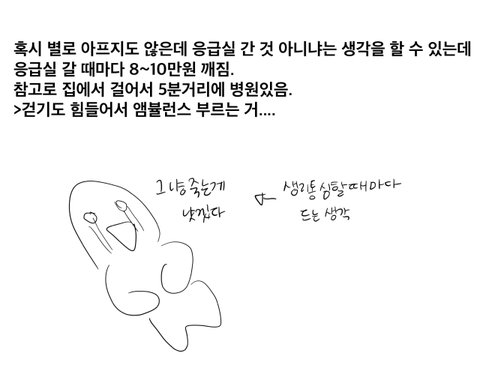 혹시 별로 아프지도 않은데 응급실 간 것 아니냐는 생각을 할 수 있는데
응급실 갈 때마다 8~10만원 깨짐.
참고로 집에서 걸어서 5분거리에 병원있음.
>걷기도 힘들어서 앰뷸런스 부르는 거....
그냥 죽는게
낫겠다
생리통 심할때마다
드는 생각